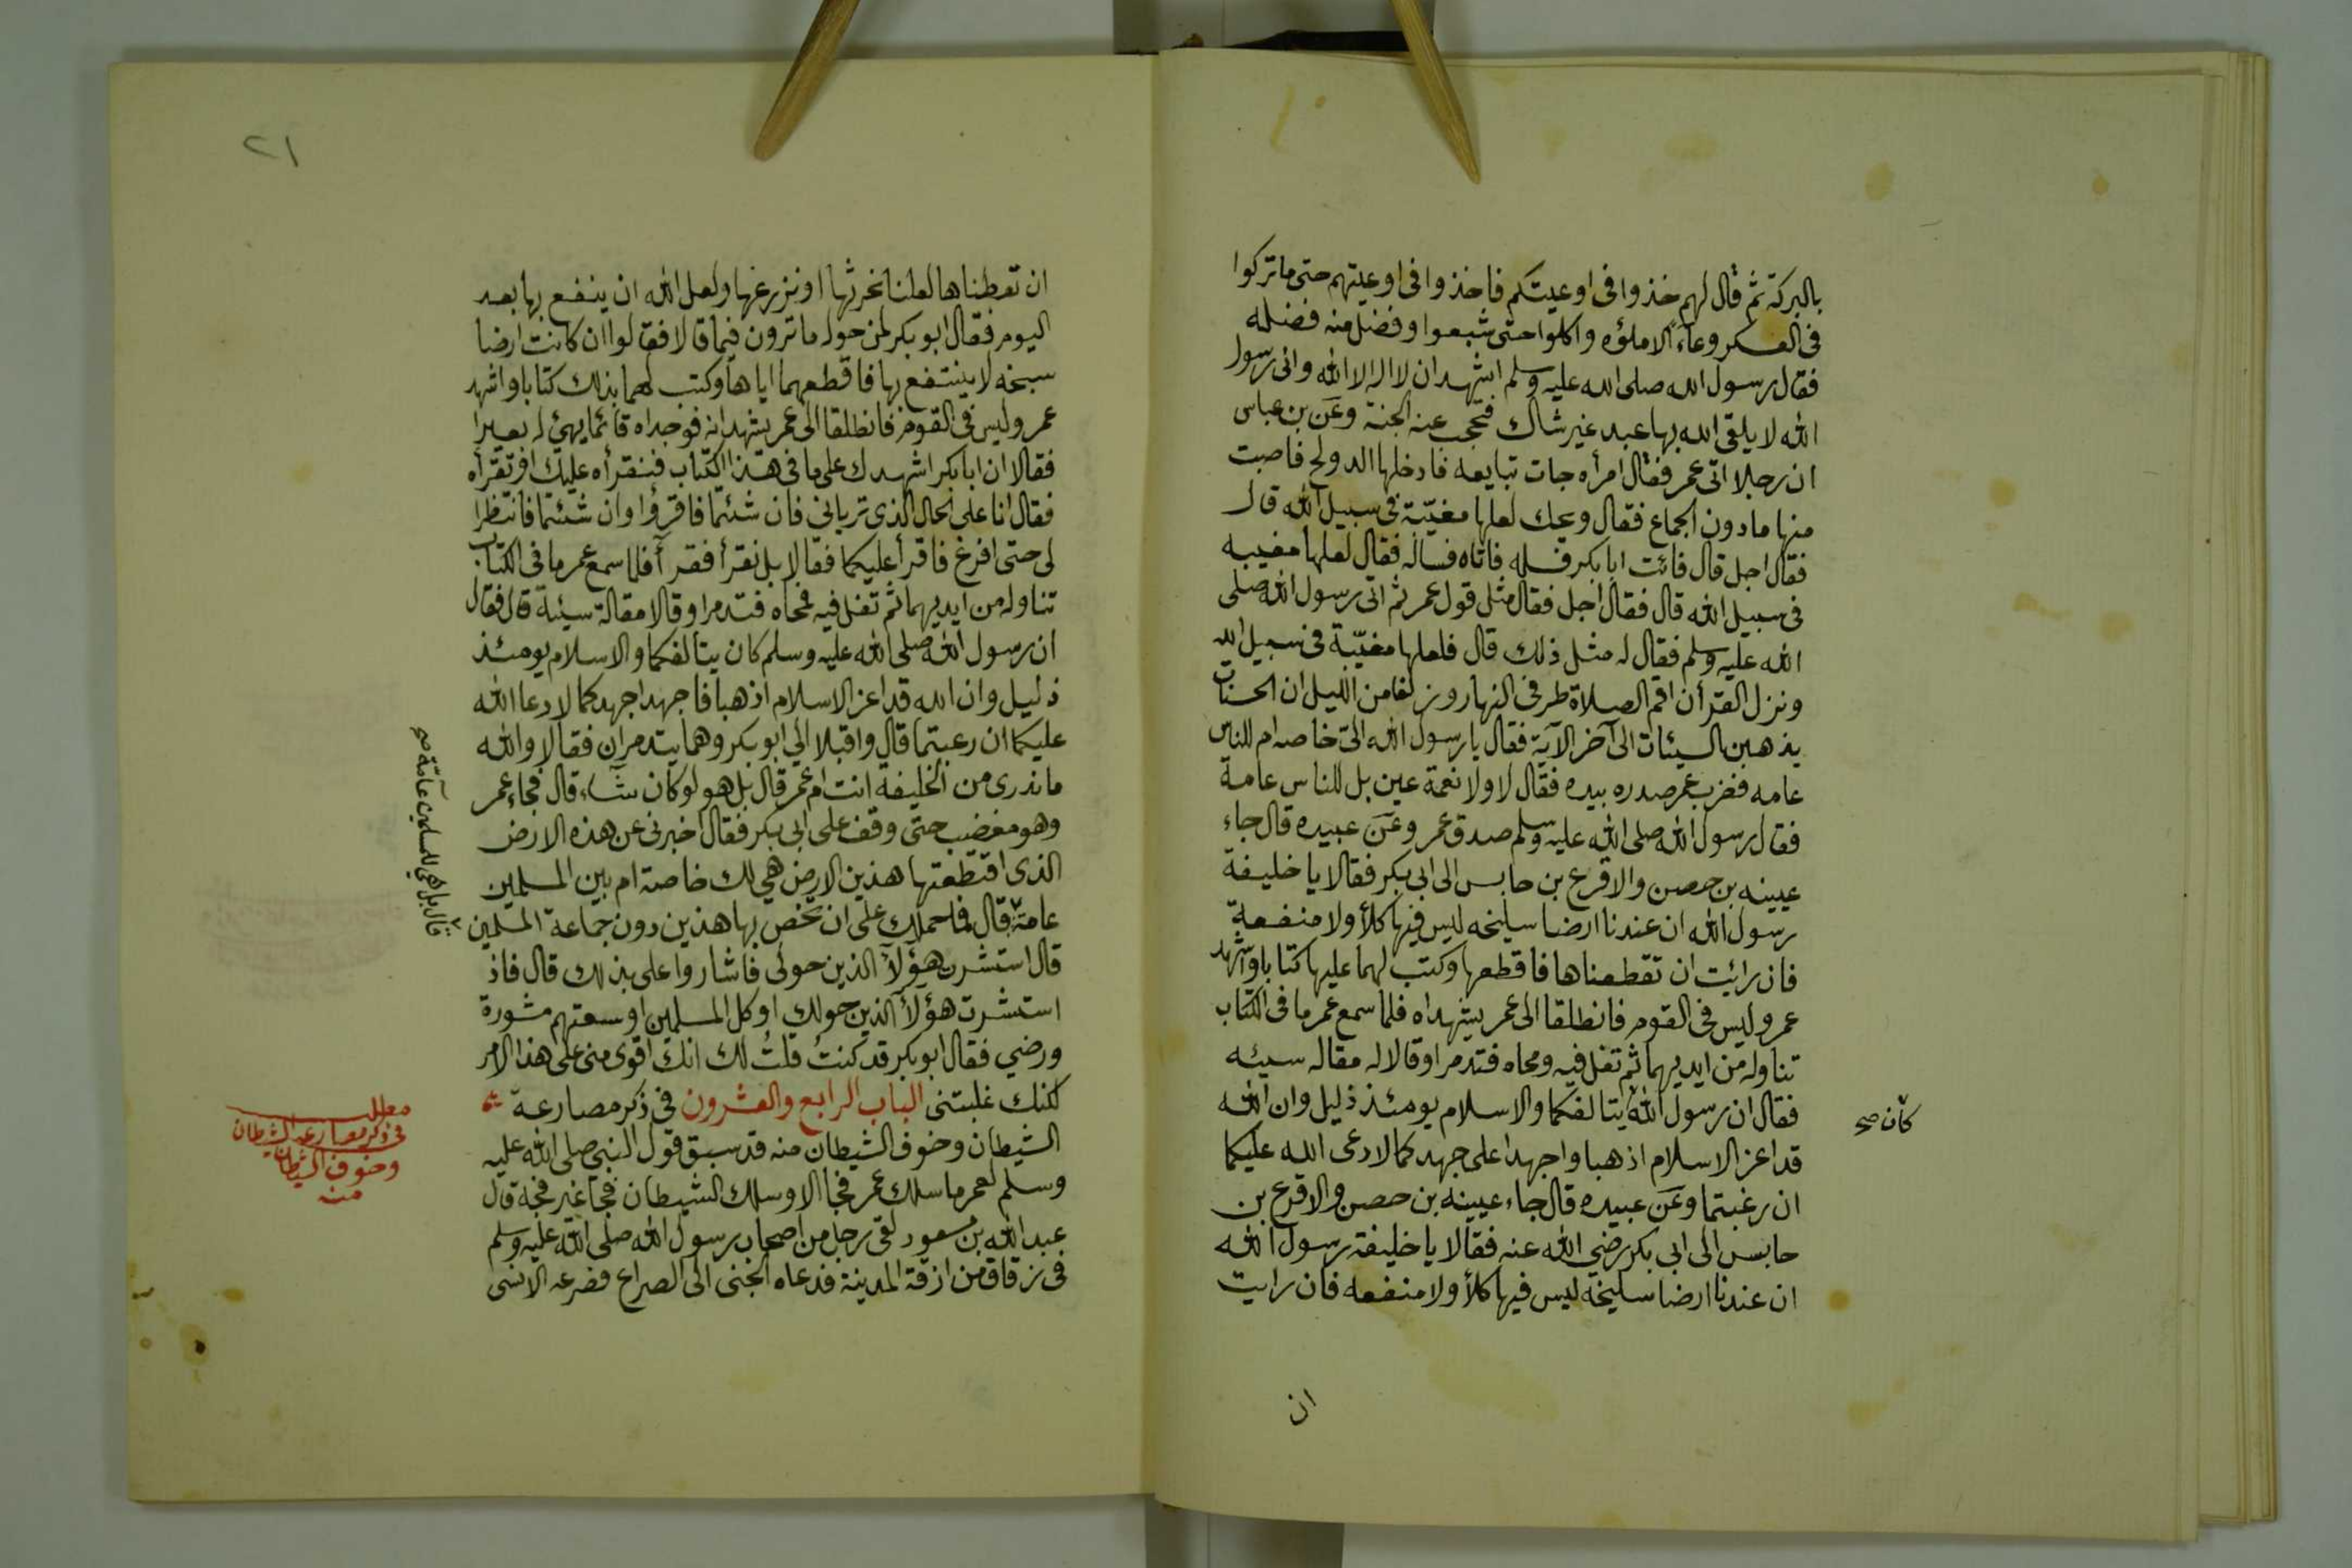 بالبركة ثم قال لهم خذوا فى اوعيتكم فاخذوا فى اوعيتهم حتى ما تركوا
فى العسكر وعاءً الا ملؤه واكلوا حتى شبعوا وفضل منه فضله
فقال رسول الله صلى الله عليه وسلم اشهد ان لا اله الا الله وانى رسول
الله لا يلقى الله بها عبد غير شاك فتحجب عنه الجنة وعَن بن عباس
ان رجلا اتى عمر فقال امرأه جات تبايعه فادخلها الدولج فاصبت
منها ما دون الجماع فقال ويحك لعلها مغيّبة فى سبيل الله قال
فقال اجل قال فائت ابا بكر فسله فاتاه فساله فقال لعلها مغيبه
فى سبيل الله قال فقال اجل فقال مثل قول عمر ثم اتى رسول الله صلى
الله عليه وسلم فقال له مثل ذلك قال فلعلها مغيّبة فى سبيل الله
ونزل القرأن اقم الصلاة طرفى النهار وزلفا من الليل ان الحسنات
يذهبن السيئات الى آخر الآية فقال يا رسول الله الىّ خاصه ام للناس
عامه فضرب عمر صدره بيده فقال لا ولا نعمة عين بل للناس عامة
فقال رسول الله صلى الله عليه وسلم صدق عمر وعَن عبيده قال جاء
عيينه بن حصن والاقرع بن حابس الى ابى بكر فقالا يا خليفة
رسول الله ان عندنا ارضا سليخه ليس فيها كلأ ولا منفعة
فان رائيت ان تقطعناها فاقطعها وكتب لهما عليها كتابا واشهد
عمر وليس فى القوم فانطلقا الى عمر يشهداه فلما سمع عمر ما فى الكتاب
تناوله من ايديهما ثم تفل فيه ومحاه فتذمرا وقالا له مقاله سيئه
فقال ان رسول الله يتالفكما والاسلام يومئذ ذليل وان الله
كان صح
قد اعز الاسلام اذهبا واجهدا على جهدكما لا رعى الله عليكما
ان رغبتما وعَن عبيده قال جاء عيينه بن حصن والاقرع بن
حابس الى ابى بكر رضي الله عنه فقالا يا خليفة رسول الله
ان عندنا ارضا سليخة ليس فيها كلأ ولا منفعه فان رايت
ان
٢١
ان تعطناها لعلنا نحرثها او نزرعها ولعل الله ان ينفع بها بعد
اليوم فقال ابو بكر لمن حوله ما ترون فيما قالا فقالوا ان كانت ارضا
سبخه لا ينتفع بها فاقطعهما اياها وكتب لهما بذلك كتابا واشهد
عمر وليس فى القوم فانطلقا الى عمر يشهدانه فوجداه قائما يهئ له بعيرا
فقالا ان ابا بكر اشهدك على ما فى هذا الكتاب فنقرأه عليك او تقرأه
فقال انا على الحال الذى ترياني فان شئتما فاقرؤا وان شئتما فانتظرا
لى حتى افرغ فاقرأ عليكما فقالا بل نقرأ فقرآ فلما سمع عمر ما فى الكتاب
تناوله من ايديهما ثم تفل فيه فمحاه فتذمرا وقالا مقالة سيئة قال فقال
ان رسول الله صلى الله عليه وسلم كان يتالفكما والاسلام يومئذ
ذليل وان الله قد اعز الاسلام اذهبا فاجهدا جهدكما لا رعا الله
عليكما ان رعبتما قال واقبلا الي ابو بكر وهما يتذمران فقالا والله
ما ندرى من الخليفة انت ام عمر قال بل هو لو كان شاء قال فجاء عمر
وهو مغضب حتى وقف على ابى بكر فقال اخبرنى عن هذه الارض
الذى اقتطعتها هذين الارض هي لك خاصة ام بين المسلمين
عامة قال فما حملك على ان تخص بها هذين دون جماعة المسلمين
قال بل هي للمسلمين عامّة صح
قال استشرت هؤلآ الذين حولى فاشاروا على بذلك قال فاذ
استشرت هؤلآ الذين حولك او كل المسلمين اوسعتهم مشورة
ورضي فقال ابو بكر قد كنتُ قلتُ لك انك اقوى منى على هذا الامر
لكنك غلبتنى الباب الرابع والعشرون فى ذكر مصارعة
الشيطان وخوف الشيطان منه قد سبق قول النبي صلى الله عليه
مطلب
فى ذكر مصارعة الشيطان
وخوف الشيطان
منه
وسلم لعمر ما سلك عمر فجا الا وسلك الشيطان فجا غير فجة قال
عبد الله بن مسعود لقى رجل من اصحاب رسول الله صلى الله عليه وسلم
فى زقاق من ازقة المدينة فدعاه الجنى الى الصراع فصرعه الانسى